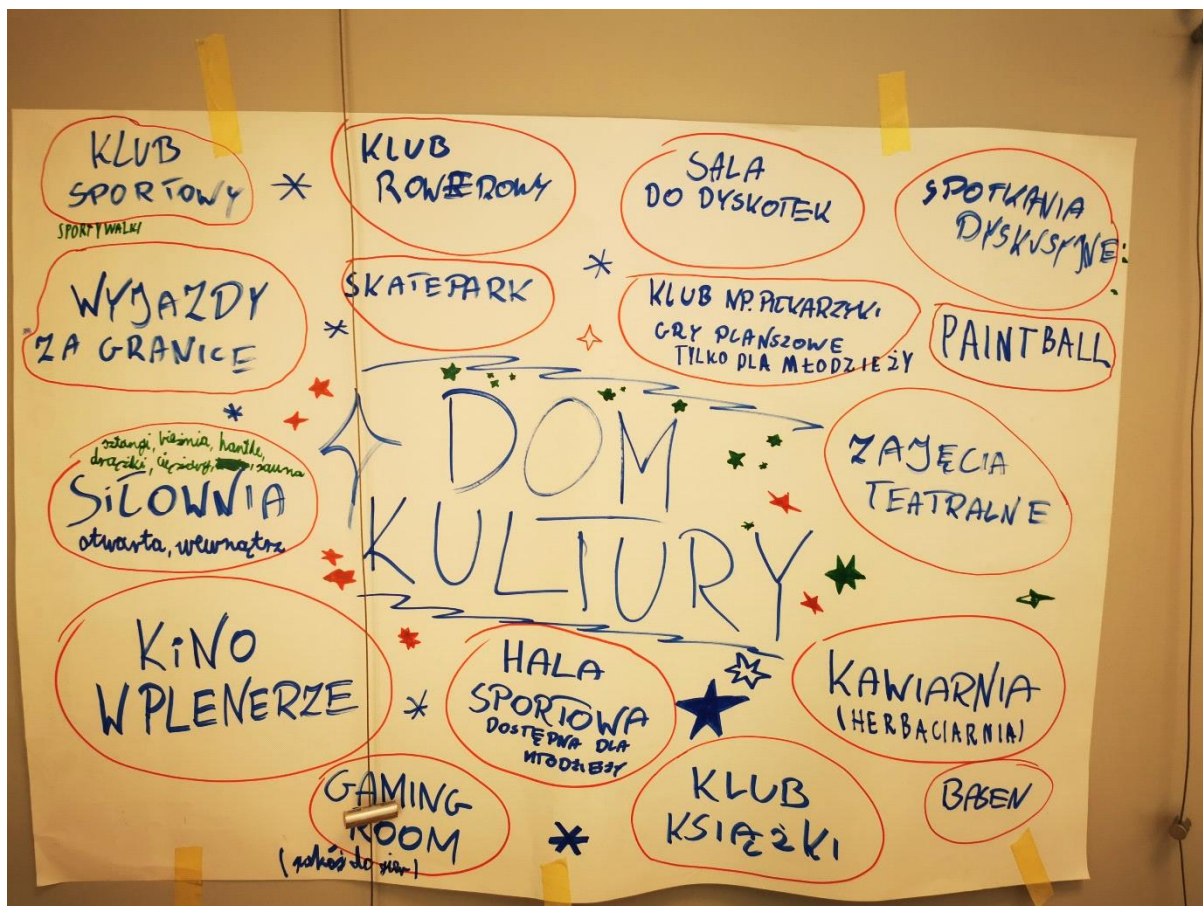 KLUB
SPORTOWY
SPORTY WALKI
KLUB
ROWEROWY
SALA
DO DYSKOTEK
SPOTKANIA
DYSKUSYJNE
WYJAZDY
ZA GRANICĘ
SKATEPARK
KLUB NP. PIŁKARZYKI
GRY PLANSZOWE
TYLKO DLA MŁODZIEŻY
PAINTBALL
DOM
KULTURY
sztangi, bieżnia, hantle,
drążki, ciężarki, sauna
SIŁOWNIA
otwarta, wewnątrz
ZAJĘCIA
TEATRALNE
KINO
W PLENERZE
HALA
SPORTOWA
DOSTĘPNA DLA
MŁODZIEŻY
KAWIARNIA
(HERBACIARNIA)
GAMING
ROOM
(pokój do gier)
KLUB
KSIĄŻKI
BASEN